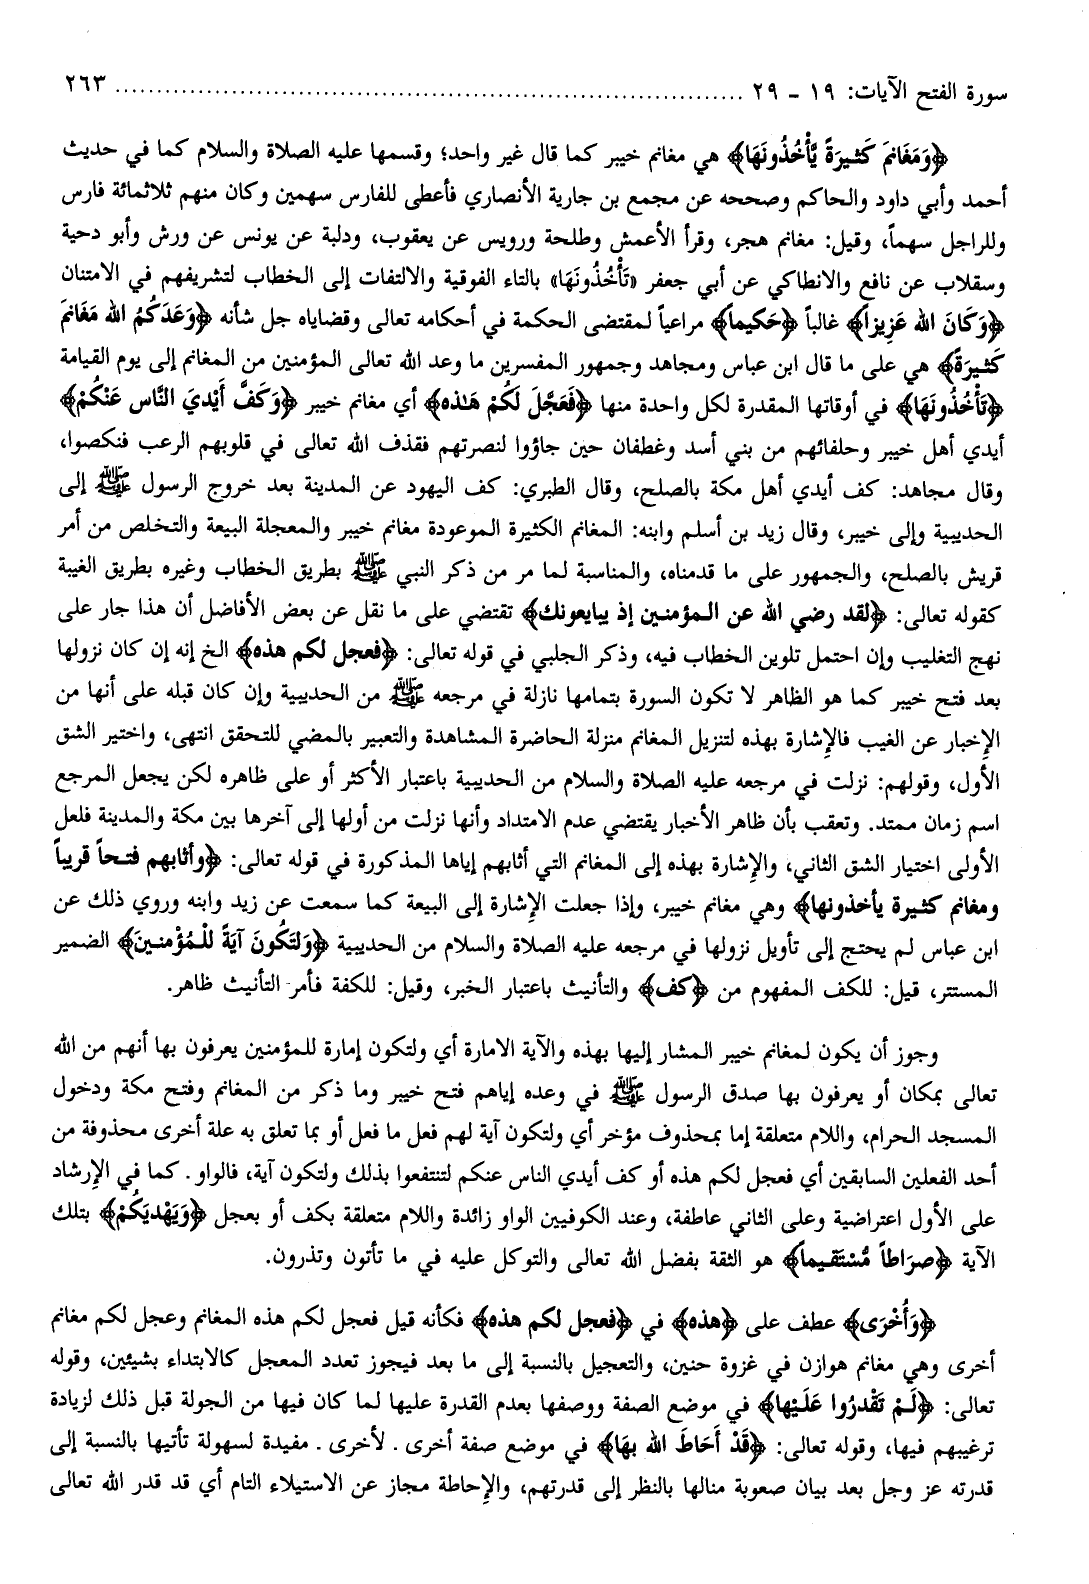 سورة الفتح الآيات: ١٩ - ٢٩ ........................................................................ ٢٦٣
﴿وَمَغَانِمَ كَثِيرَةً يَأْخُذُونَهَا﴾ هي مغانم خيبر كما قال غير واحد؛ وقسمها عليه الصلاة والسلام كما في حديث
أحمد وأبي داود والحاكم وصححه عن مجمع بن جارية الأنصاري فأعطى للفارس سهمين وكان منهم ثلاثمائة فارس
وللراجل سهماً، وقيل: مغانم هجر، وقرأ الأعمش وطلحة ورويس عن يعقوب، ودلبة عن يونس عن ورش وأبو دحية
وسقلاب عن نافع والانطاكي عن أبي جعفر «تَأْخُذُونَهَا» بالتاء الفوقية والالتفات إلى الخطاب لتشريفهم في الامتنان
﴿وَكَانَ الله عَزِيزاً﴾ غالباً ﴿حَكيماً﴾ مراعياً لمقتضى الحكمة في أحكامه تعالى وقضاياه جل شأنه ﴿وَعَدَكُمُ الله مَغَانمَ
كَثِيرَةً﴾ هي على ما قال ابن عباس ومجاهد وجمهور المفسرين ما وعد الله تعالى المؤمنين من المغانم إلى يوم القيامة
﴿تَأْخُذُونَهَا﴾ في أوقاتها المقدرة لكل واحدة منها ﴿فَعَجَّلَ لَكُمْ هَذه﴾ أي مغانم خيبر ﴿وَكَفَّ أَيْديَ النَّاس عَنْكُمْ﴾
أيدي أهل خيبر وحلفائهم من بني أسد وغطفان حين جاؤوا لنصرتهم فقذف الله تعالى في قلوبهم الرعب فنكصوا،
وقال مجاهد: كف أيدي أهل مكة بالصلح، وقال الطبري: كف اليهود عن المدينة بعد خروج الرسول ﷺ إلى
الحديبية وإلى خيبر، وقال زيد بن أسلم وابنه: المغانم الكثيرة الموعودة مغانم خيبر والمعجلة البيعة والتخلص من أمر
قريش بالصلح، والجمهور على ما قدمناه، والمناسبة لما مر من ذكر النبي ﷺ بطريق الخطاب وغيره بطريق الغيبة
كقوله تعالى: ﴿لقد رضي الله عن المؤمنين إذ يبايعونك﴾ تقتضي على ما نقل عن بعض الأفاضل أن هذا جار على
نهج التغليب وإن احتمل تلوين الخطاب فيه، وذكر الجلبي في قوله تعالى: ﴿فعجل لكم هذه﴾ الخ إنه إن كان نزولها
بعد فتح خيبر كما هو الظاهر لا تكون السورة بتمامها نازلة في مرجعه ﷺ من الحديبية وإن كان قبله على أنها من
الإخبار عن الغيب فالإشارة بهذه لتنزيل المغانم منزلة الحاضرة المشاهدة والتعبير بالمضي للتحقق انتهى، واختير الشق
الأول، وقولهم: نزلت في مرجعه عليه الصلاة والسلام من الحديبية باعتبار الأكثر أو على ظاهره لكن يجعل المرجع
اسم زمان ممتد. وتعقب بأن ظاهر الأخبار يقتضي عدم الامتداد وأنها نزلت من أولها إلى آخرها بين مكة والمدينة فلعل
الأولى اختيار الشق الثاني، والإشارة بهذه إلى المغانم التي أثابهم إياها المذكورة في قوله تعالى: ﴿وأثابهم فتحاً قريباً
ومغانم كثيرة يأخذونها﴾ وهي مغانم خيبر، وإذا جعلت الإشارة إلى البيعة كما سمعت عن زيد وابنه وروي ذلك عن
ابن عباس لم يحتج إلى تأويل نزولها في مرجعه عليه الصلاة والسلام من الحديبية ﴿وَلتَكُونَ آيَةً للْمُؤْمنينَ﴾ الضمير
المستتر، قيل: للكف المفهوم من ﴿كف﴾ والتأنيث باعتبار الخبر، وقيل: للكفة فأمر التأنيث ظاهر.
وجوز أن يكون لمغانم خيبر المشار إليها بهذه والآية الامارة أي ولتكون إمارة للمؤمنين يعرفون بها أنهم من الله
تعالى بمكان أو يعرفون بها صدق الرسول ﷺ في وعده إياهم فتح خيبر وما ذكر من المغانم وفتح مكة ودخول
المسجد الحرام، واللام متعلقة إما بمحذوف مؤخر أي ولتكون آية لهم فعل ما فعل أو بما تعلق به علة أخرى محذوفة من
أحد الفعلين السابقين أي فعجل لكم هذه أو كف أيدي الناس عنكم لتنتفعوا بذلك ولتكون آية، فالواو. كما في الإرشاد
على الأول اعتراضية وعلى الثاني عاطفة، وعند الكوفيين الواو زائدة واللام متعلقة بكف أو بعجل ﴿وَيَهْديَكُمْ﴾ بتلك
الآية ﴿صرَاطاً مُّسْتَقيماً﴾ هو الثقة بفضل الله تعالى والتوكل عليه في ما تأتون وتذرون.
﴿وَأُخْرَى﴾ عطف على ﴿هذه﴾ في ﴿فعجل لكم هذه﴾ فكأنه قيل فعجل لكم هذه المغانم وعجل لكم مغانم
أخرى وهي مغانم هوازن في غزوة حنين، والتعجيل بالنسبة إلى ما بعد فيجوز تعدد المعجل كالابتداء بشيئين، وقوله
تعالى: ﴿لَمْ تَقْدرُوا عَلَيْها﴾ في موضع الصفة ووصفها بعدم القدرة عليها لما كان فيها من الجولة قبل ذلك لزيادة
ترغيبهم فيها، وقوله تعالى: ﴿قَدْ أَحَاطَ الله بهَا﴾ في موضع صفة أخرى. لأخرى. مفيدة لسهولة تأتيها بالنسبة إلى
قدرته عز وجل بعد بيان صعوبة منالها بالنظر إلى قدرتهم، والإحاطة مجاز عن الاستيلاء التام أي قد قدر الله تعالى